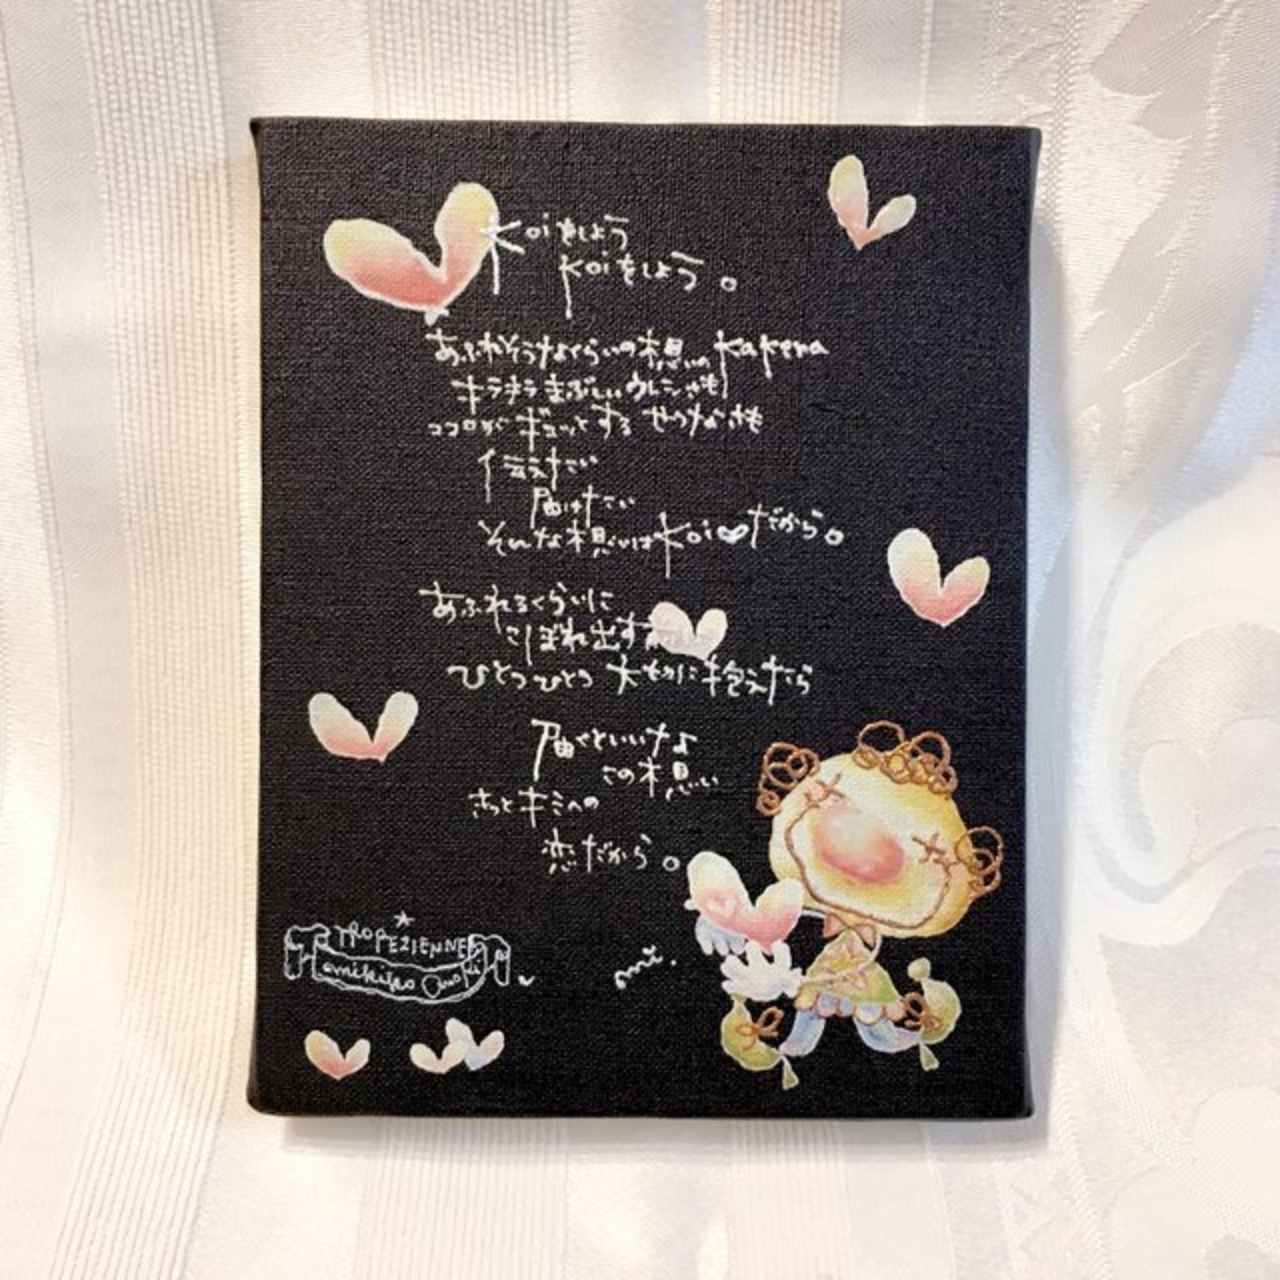 Koiをしよう
Koiをしよう。
あふれそうなくらいの想いのKakera
キラキラまぶしいウレシさも
ココロがギュッとするせつなさも
伝えたい
届けたい
そんな想いはKoi♥だから。
あふれるくらいに
こぼれ出す
ひとつひとつ 大切に抱えたら
届くといいなよ
この想い
きっとキミへの
恋だから。
TROPEZIENNE
mi.